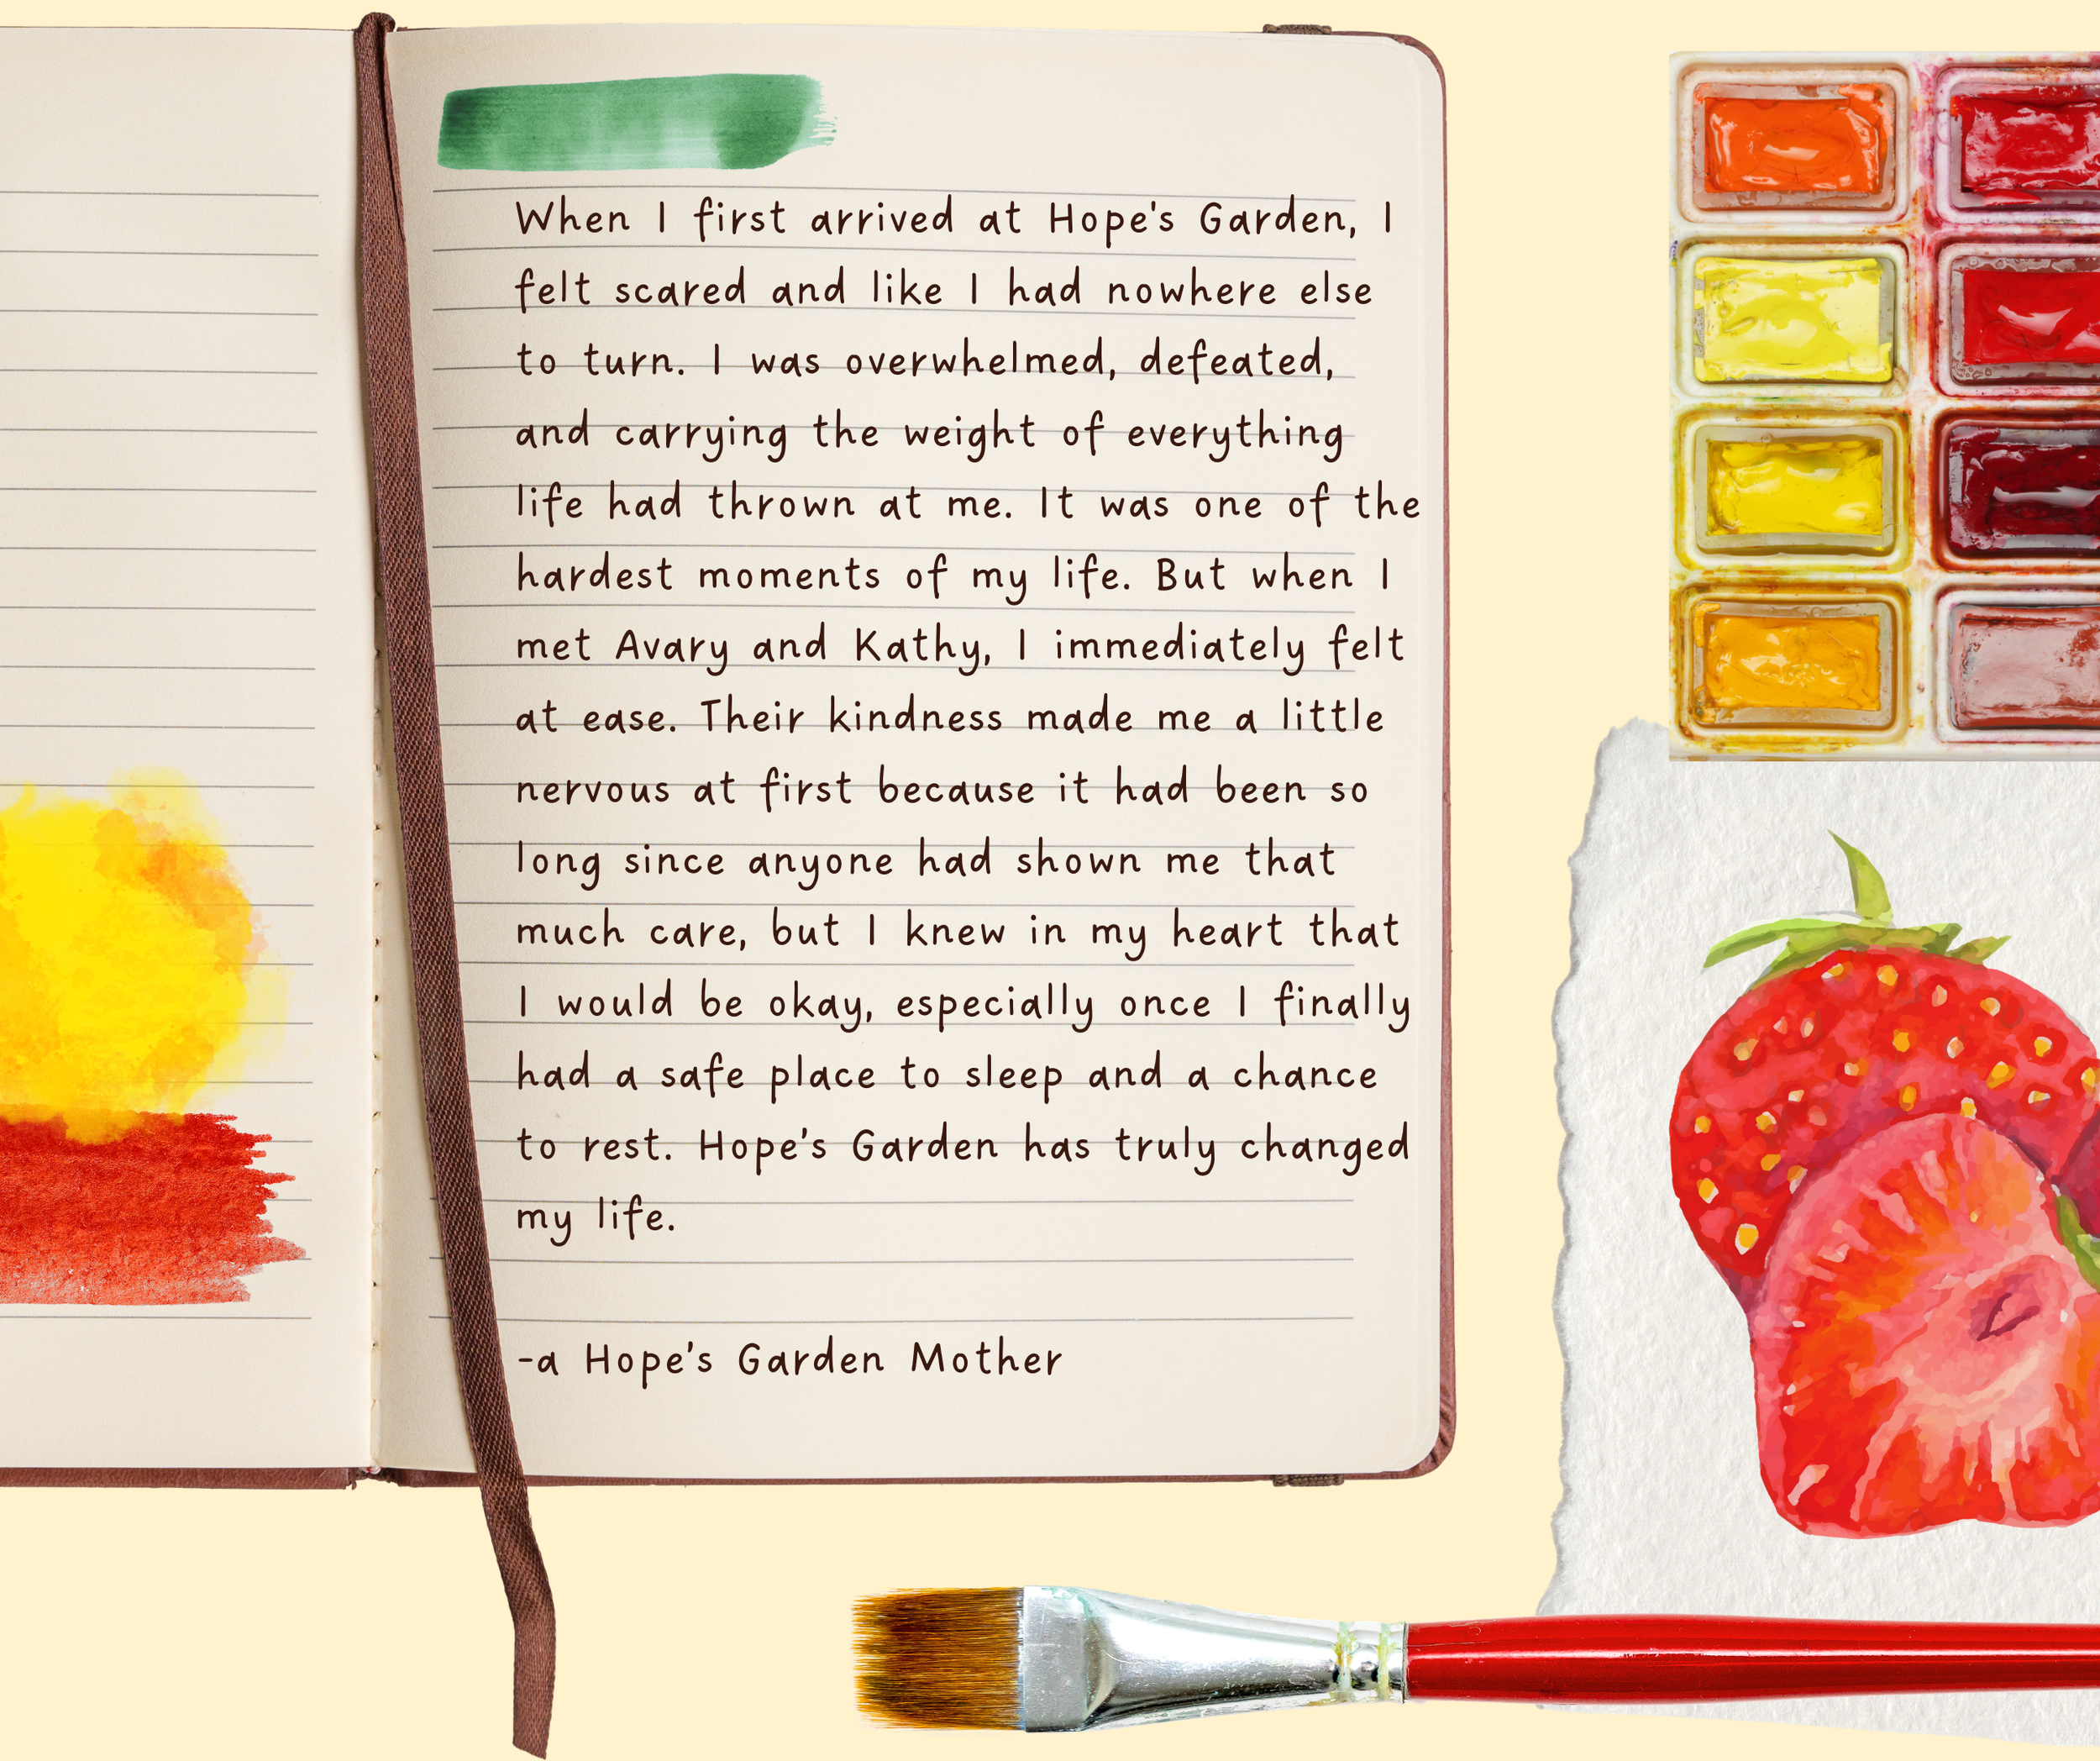 When I first arrived at Hope's Garden, I
felt scared and like I had nowhere else
to turn. I was overwhelmed, defeated,
and carrying the weight of everything
life had thrown at me. It was one of the
hardest moments of my life. But when I
met Avary and Kathy, I immediately felt
at ease. Their kindness made me a little
nervous at first because it had been so
long since anyone had shown me that
much care, but I knew in my heart that
I would be okay, especially once I finally
had a safe place to sleep and a chance
to rest. Hope's Garden has truly changed
my life.
-a Hope's Garden Mother